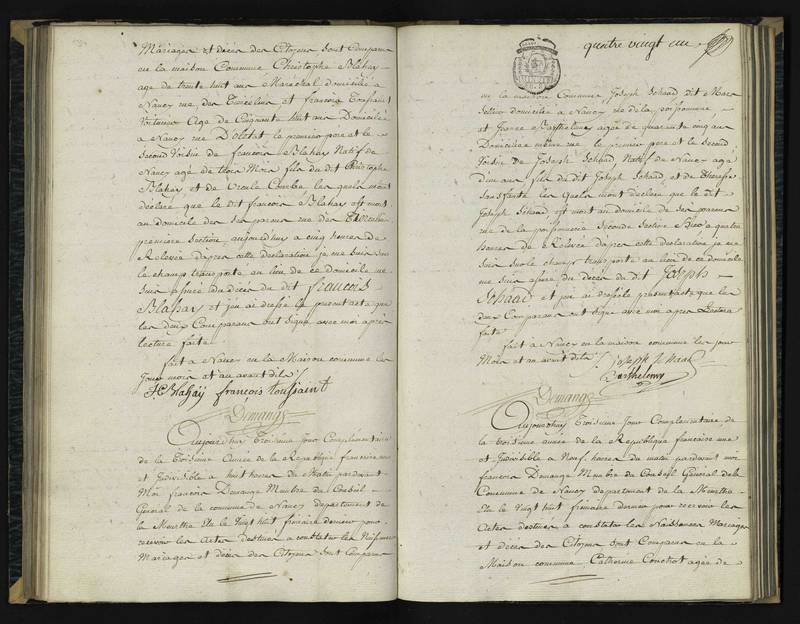 Mariages et décès des Citoyens sont Comparus
en la maison Commune Christophe Blahay
age de trente huit ans Maréchal domicilié a
Nancy rue des et françois Toussaint
Voiturier Age de Cinquante huit ans Domicilié
a Nancy rue le premier pere et le
Second Voisin de françois Blahay Natif de
Nancy age de trois Mois fils du dit Christophe
Blahay et de Ursule les quels mont
déclaré que le dit françois Blahay est mort
au domicile de ses parens rue des
premiere Section, aujourdhuy a cinq heures de
Relevée dapres cette déclaration je me suis sur
le champ transporté au lieu de ce domicile me
suis assuré du décès du dit françois
Blahay et jen ai dressé le present acte que
les deux Comparans ont signé avec moi après
lecture faite
fait a Nancy en la Maison commune les
jour mois et an avant dits
Blahaÿ françois toussaint
Demange
Aujourdhuy Troisieme jour Complementaire
de la Troisieme Année de la Republique francaise une
et Indivisible a huit heures du Matin pardevant
Moi francois Demange Membre du Conseil
Général de la commune de Nancy departement de
la Meurthe Elu le Vingt huit frimaire dernier pour
recevoir les Actes destinés a constater les Naissances
Mariages et décès des Citoyens sont Comparus
quatre vingt un
en la maison Commune Joseph Schaad dit
domicilié a Nancy rue de la poissonnerie,
et france Barthelemy agée de quarante cinq ans
Domiciliée même rue le premier pere et le Second
Voisin de Joseph Schaad Natif de Nancy agé
dun an fils du dit Joseph Schaad et de Therese
les Quels mont declaré que le dit
Joseph Schaad est mort au domicile de ses parens
rue de la poissonnerie Seconde Section a quatre
heures de Relevée dapres cette declaration je me
suis sur le champ transporté au lieu de ce domicile
me suis assuré du décès du dit Joseph
Schaad et jen ai dressé le present acte que les
deux Comparans ont signé avec moi apres Lecture
faite
fait a Nancy en la maison commune les jour
Mois et an avant dits Joseph
Barthelemy
Demange
Aujourdhuy Troisieme Jour Complementaire de
la troisieme année de la Republique francaise une
et Indivisible a Neuf heures du matin pardevant moi
francois Demange Membre du Conseil Général de la
Commune de Nancy departement de la Meurthe
Elu le Vingt huit frimaire dernier pour recevoir les
Actes destinés a constater les Naissances Mariages
et décès des Citoyens sont Comparus en la
Maison commune Catherine agée de